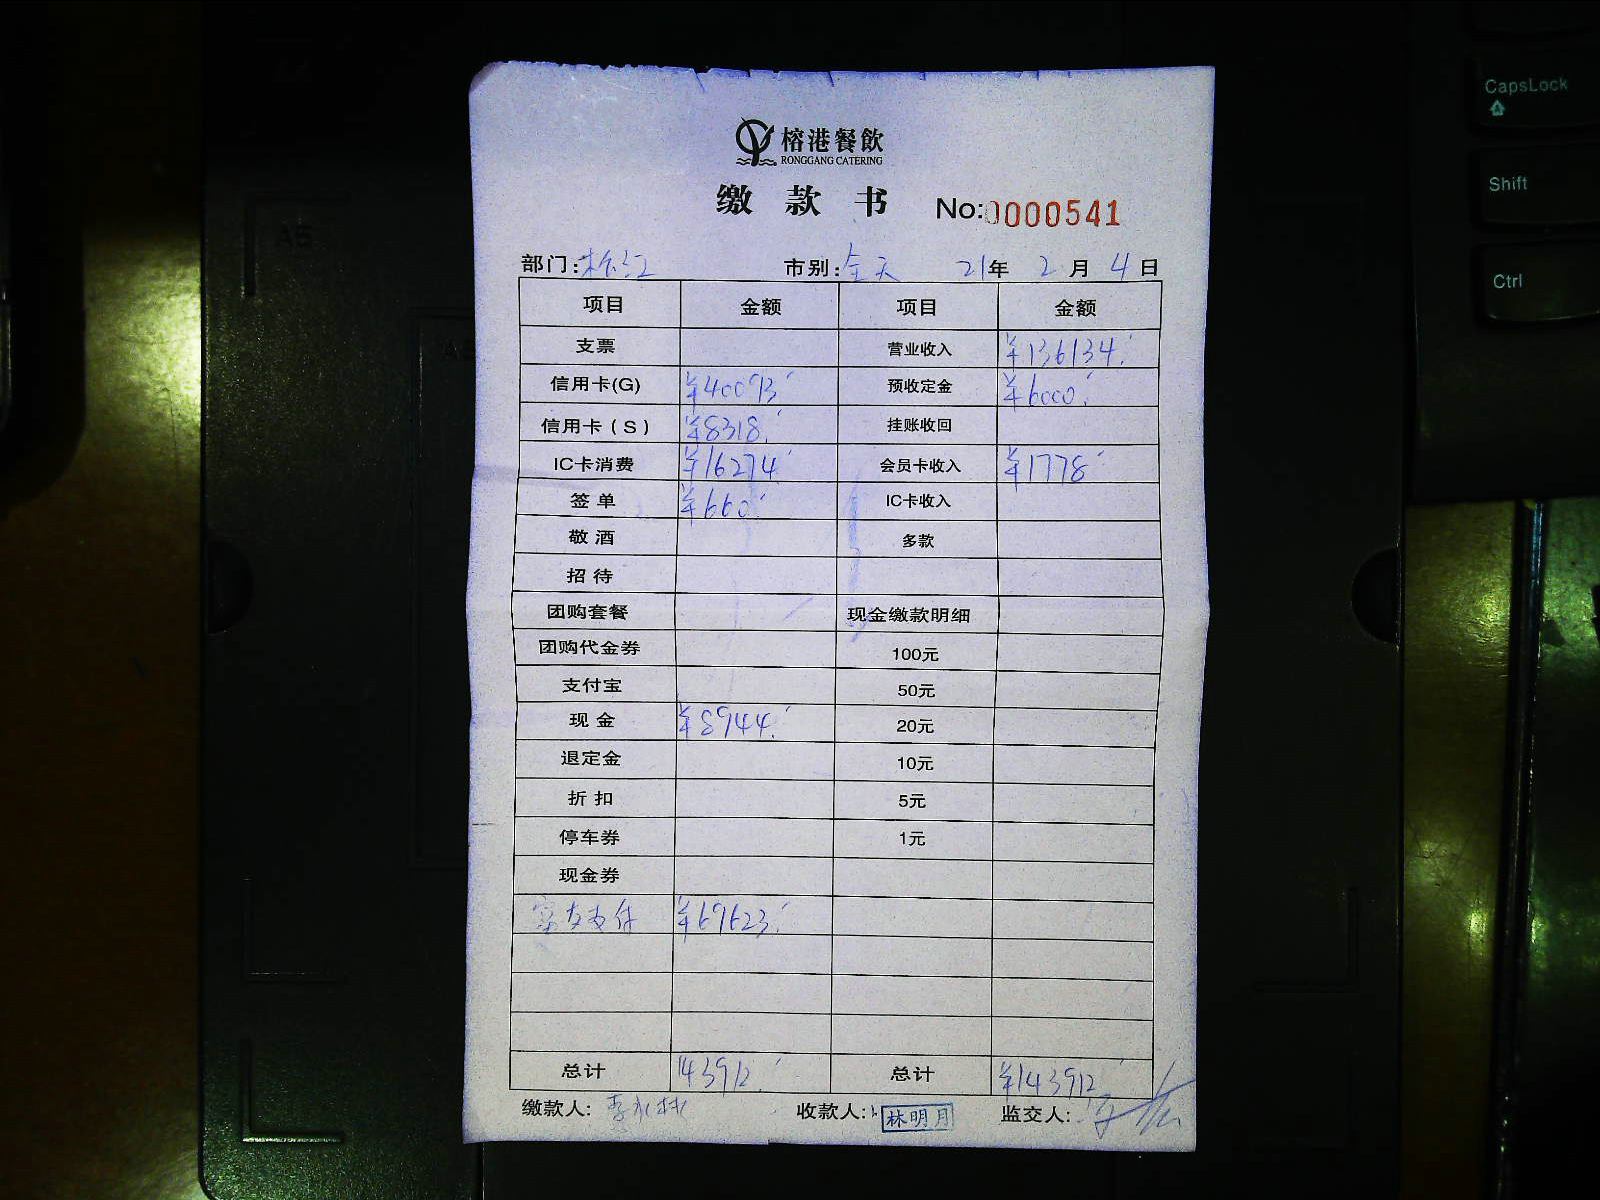 榕港餐飲
RONGGANG CATERING
缴款书 No:0000541
部门:松江 市别:全天 21年2月4日
项目 金额 项目 金额
支票 营业收入 ¥136134.
信用卡(G) ¥40093. 预收定金 ¥6000.
信用卡(S) ¥8318. 挂账收回
IC卡消费 ¥16274. 会员卡收入 ¥1778.
签单 ¥660. IC卡收入
敬酒 多款
招待
团购套餐 现金缴款明细
团购代金券 100元
支付宝 50元
现金 ¥8944. 20元
退定金 10元
折扣 5元
停车券 1元
现金券
富友支付 ¥69623.
总计 143912. 总计 ¥143912.
缴款人: 收款人:林明月 监交人:
CapsLock
Shift
Ctrl
A5